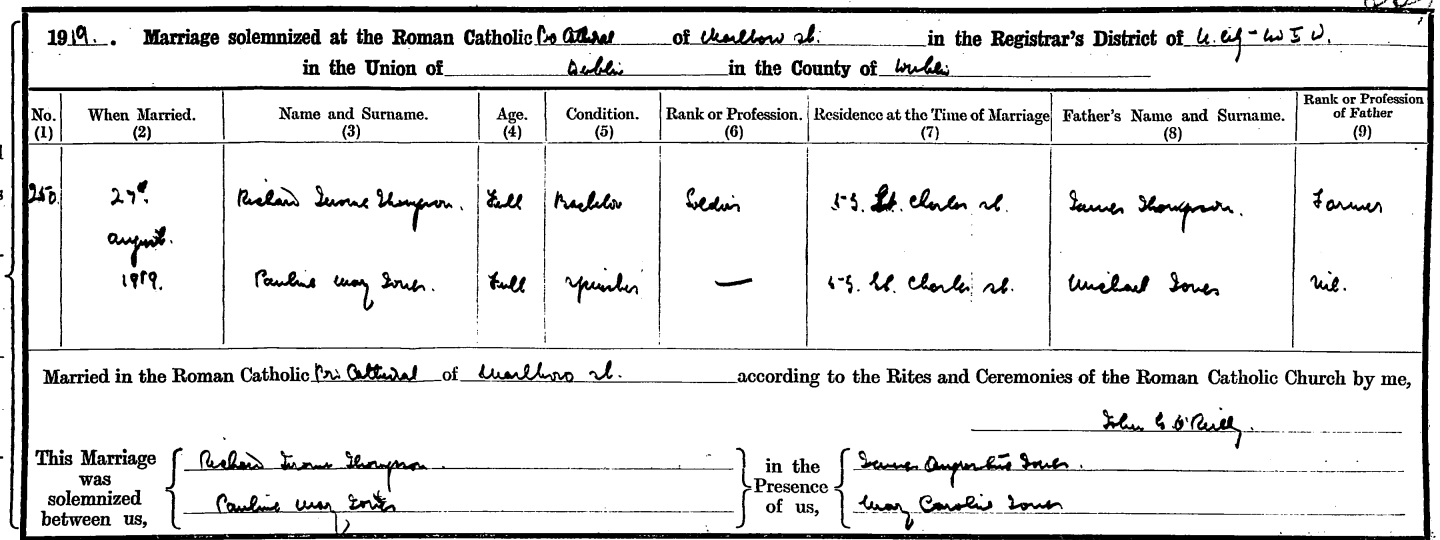 1919. Marriage solemnized at the Roman Catholic Pro Cathedral of Marlboro st. in the Registrar's District of N. City
in the Union of Dublin in the County of Dublin
No. (1) When Married. (2) Name and Surname. (3) Age. (4) Condition. (5) Rank or Profession. (6) Residence at the Time of Marriage (7) Father's Name and Surname. (8) Rank or Profession of Father (9)
250. 27th August. 1919. Richard Jerome Thompson. Full Bachelor Soldier St. Charles st. James Thompson. Farmer
Pauline May Jones. Full Spinster — St. Charles st. Michael Jones Nil.
Married in the Roman Catholic Pro Cathedral of Marlboro st. according to the Rites and Ceremonies of the Roman Catholic Church by me,
John O'Reilly.
This Marriage was solemnized between us, Richard Jerome Thompson. Pauline May Jones in the Presence of us, James Augustus Jones. May Caroline Jones